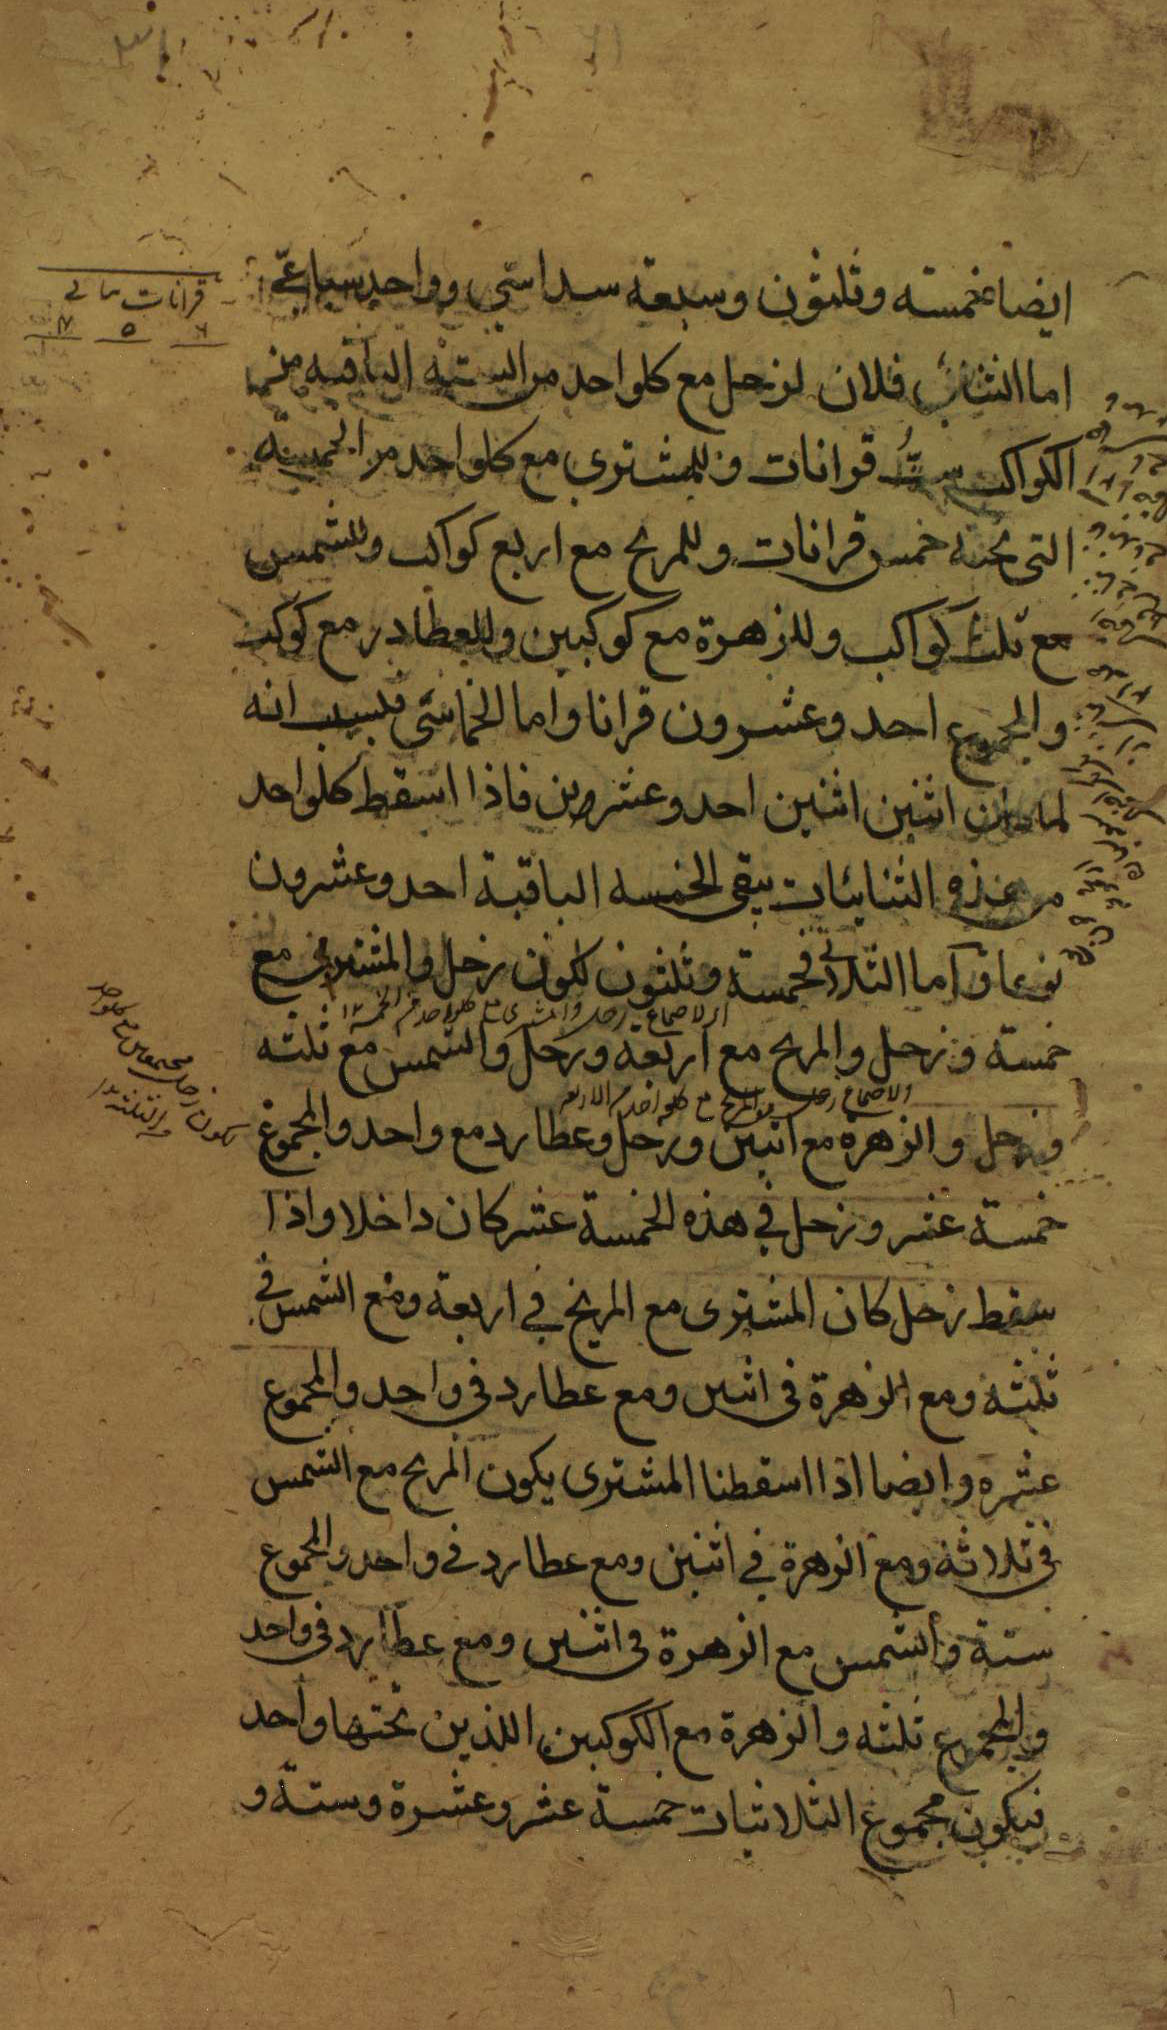 ايضا خمسته وثلثون وسبعة سداسي وواحد سباعي
اما الثنائى فلان لزحل مع كلواحد من الستة الباقيه من
الكواكب ست قرانات وللمشترى مع كلواحد من الخمسة
التى تحته خمس قرانات وللمريخ مع اربع كواكب وللشمس
مع ثلث كواكب وللزهرة مع كوكبين وللعطارد مع كوكب
والمجموع احد وعشرون قرانا واما الخماسى فبسبب انه
لما كان اثنين اثنين احد وعشرين فاذا اسقط كلواحد
من هذه الثنايئات يبقى الخمسه الباقية احد وعشرون
نوعا واما الثلاثى فخمسة وثلثون لكون زحل والمشترى مع
خمسة وزحل والمريخ مع اربعة وزحل والشمس مع ثلثه
وزحل والزهرة مع اثنين وزحل وعطارد مع واحد والمجموع
خمسة عشر وزحل في هذه الخمسة عشر كان داخلا واذا
سقط زحل كان المشترى مع المريخ في اربعة ومع الشمس في
ثلثه ومع الزهرة فى اثنين ومع عطارد فى واحد والمجموع
عشره وايضا اذا اسقطنا المشترى يكون المريخ مع الشمس
فى ثلاثة ومع الزهرة في اثنين ومع عطارد في واحد والمجموع
ستة والشمس مع الزهرة فى اثنين ومع عطارد فى واحد
والمجموع ثلثه والزهرة مع الكوكبين اللذين تحتها واحد
فيكون مجموع الثلاثيات خمسة عشر وعشرة وستة و
قرانات
٦ ٥
الاجتماع زحل والمشترى مع كلواحد من الخمسة ١٢
والاجتماع زحل والمريخ مع كلواحد من الاربعه